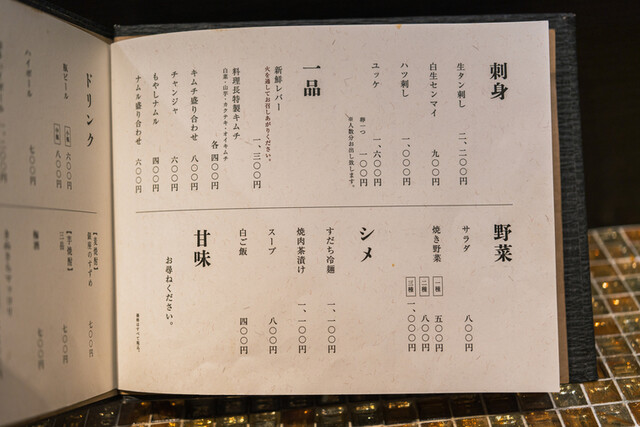 刺身
生タン刺し 二、二〇〇円
白生センマイ 九〇〇円
ハツ刺し 一、〇〇〇円
ユッケ 一、六〇〇円
卵一つ 一〇〇円
※人数分お出し致します。
一品
新鮮レバー 一、三〇〇円
火を通してお召しあがりください。
料理長特製キムチ 各 四〇〇円
白菜・山芋・カクテキ・オイキムチ
キムチ盛り合わせ 八〇〇円
チャンジャ 六〇〇円
もやしナムル 四〇〇円
ナムル盛り合わせ 六〇〇円
野菜
サラダ 八〇〇円
焼き野菜 一種 五〇〇円
二種 八〇〇円
三種 一、〇〇〇円
シメ
すだち冷麺 一、一〇〇円
焼肉茶漬け 一、一〇〇円
スープ 八〇〇円
白ご飯 四〇〇円
甘味
お尋ねください。
ドリンク
瓶ビール
六〇〇円
八〇〇円
ハイボール 七〇〇円
【麦焼酎】
銀座のすずめ 七〇〇円
【芋焼酎】
三岳 七〇〇円
梅酒 七〇〇円